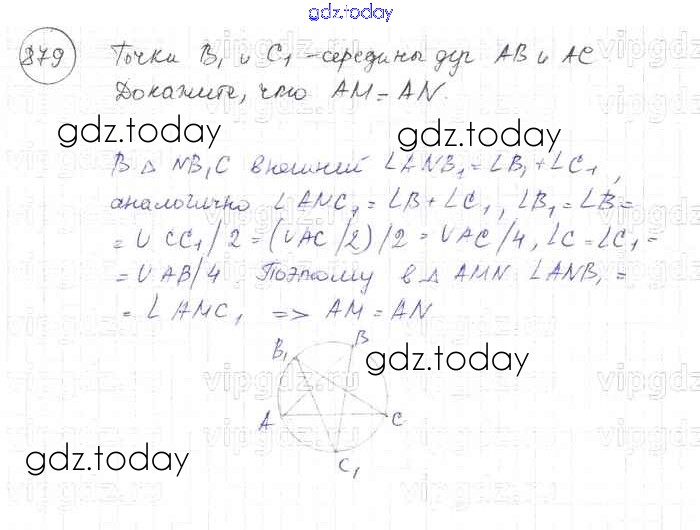 gdz.today
879 Точки B₁ и C₁ - середины дуг AB и AC
Докажите, что AM = AN.
gdz.today gdz.today
В △ NB₁C внешний ∠ANB₁ = ∠B₁ + ∠C₁,
аналогично ∠ANC₁ = ∠B + ∠C₁, ∠B₁ = ∠B =
= ∪ CC₁/2 = (∪AC/2)/2 = ∪AC/4, ∠C = ∠C₁ =
= ∪AB/4. Поэтому в △ AMN ∠ANB₁ =
= ∠AMC₁ => AM = AN
B₁ B
gdz.today
A C
gdz.today
C₁